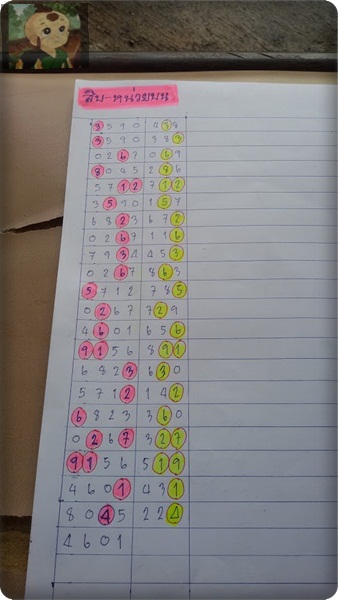 สิบ-หน่วยบน
3590 438
3590 383
0267 069
8045 286
5712 712
3590 157
6823 672
0267 116
7934 453
0267 863
5712 785
0267 729
4601 656
9156 891
6823 630
5712 142
6823 360
0267 327
9156 519
4601 431
8045 224
4601